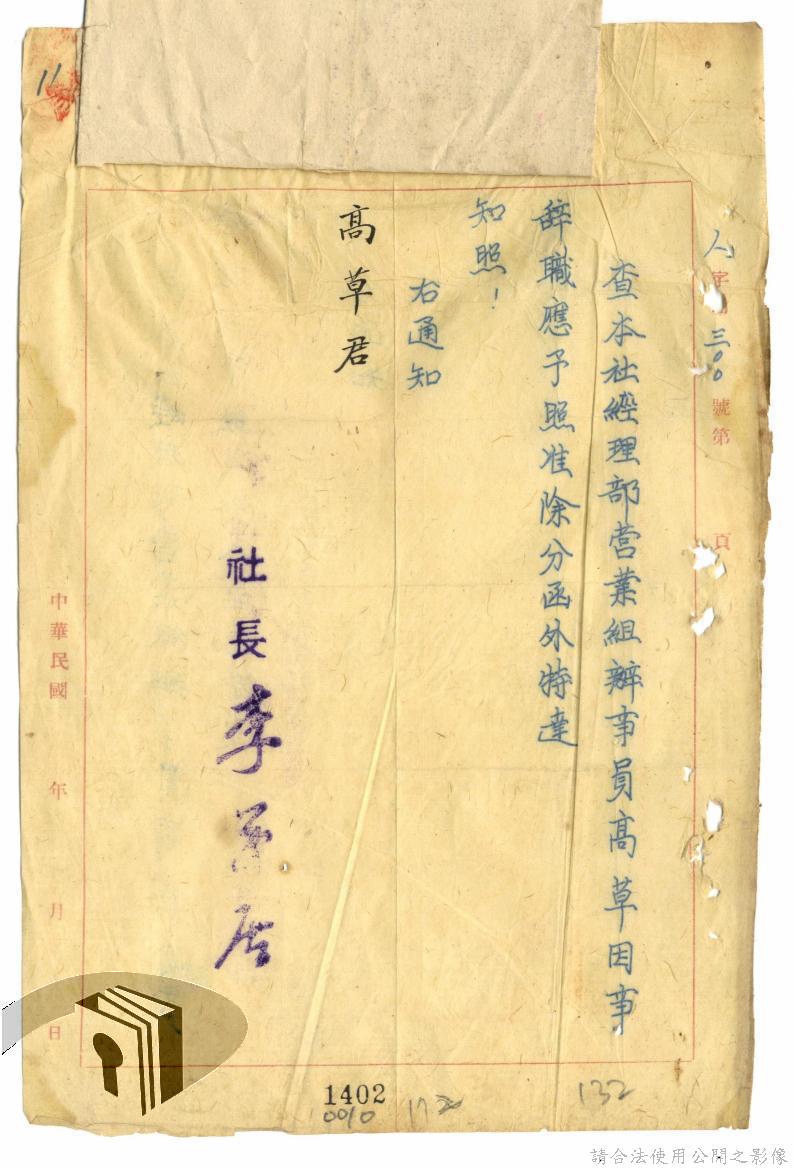 人字第三〇〇號第 頁
查本社經理部营業組辦事員高草因事
辞職應予照准除分函外特達
知照！
右通知
高草君
社長李萬居
中華民國 年 月 日
11
1402
0010
172
132
請合法使用公開之影像